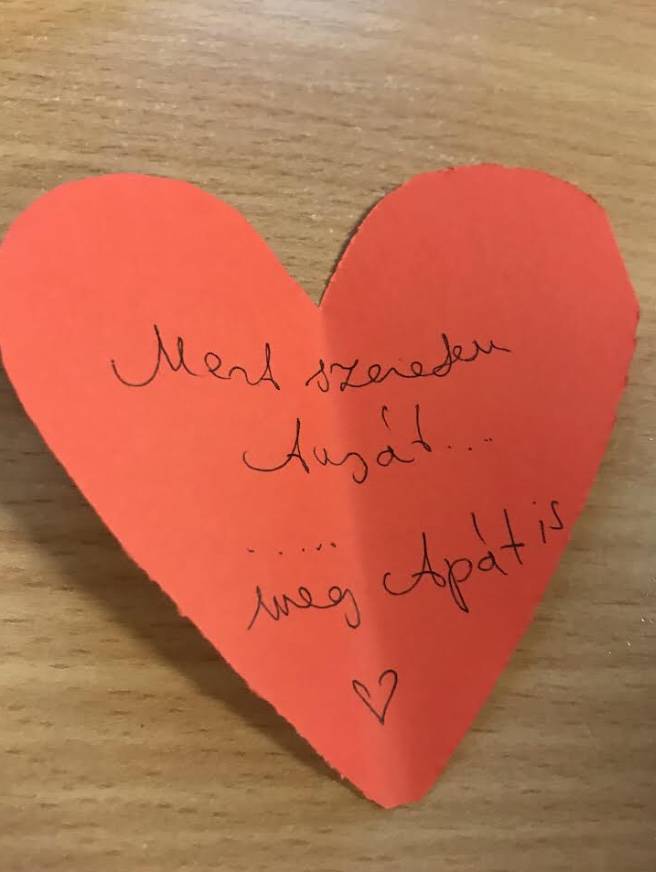 Mert szeretem
Anyát...
.....
meg Apát is
♡